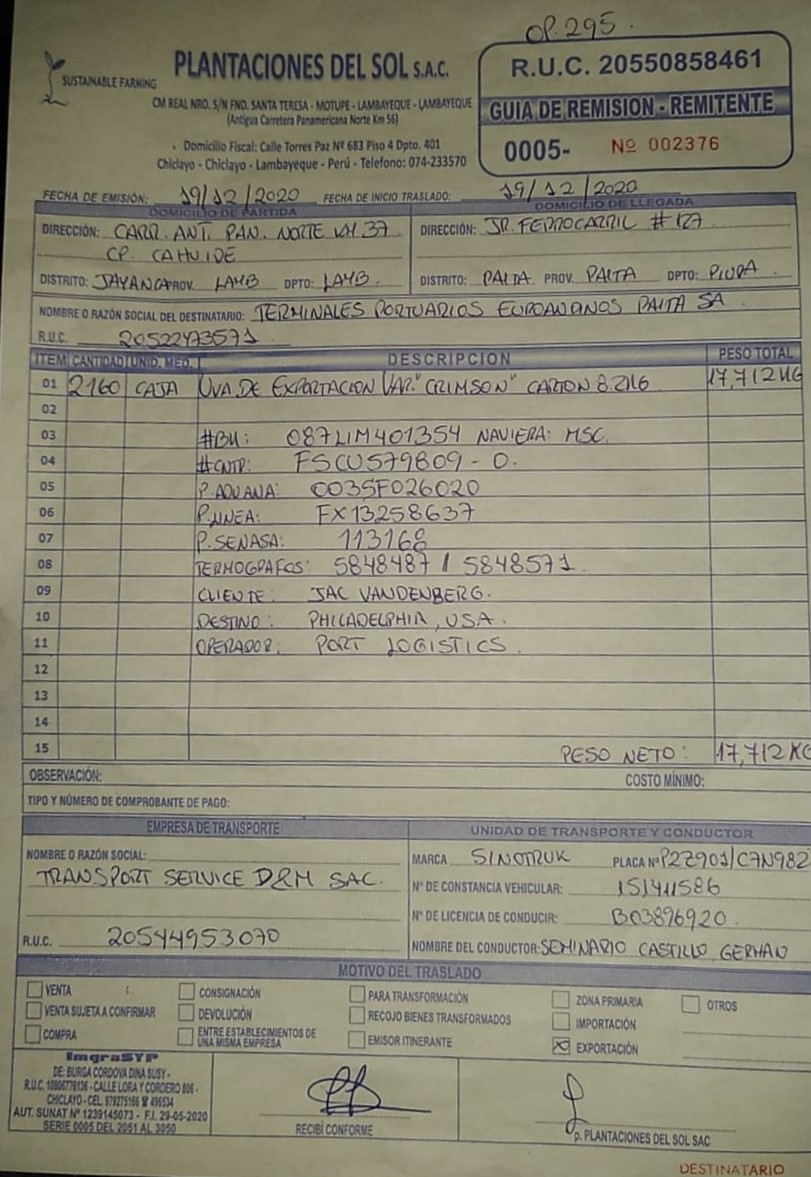 OP. 295.
SUSTAINABLE FARMING
PLANTACIONES DEL SOL S.A.C.
CM REAL NRO. S/N FND. SANTA TERESA - MOTUPE - LAMBAYEQUE - LAMBAYEQUE
(Antigua Carretera Panamericana Norte Km 56)
Domicilio Fiscal: Calle Torres Paz Nº 683 Piso 4 Dpto. 401
Chiclayo - Chiclayo - Lambayeque - Perú - Telefono: 074-233570
R.U.C. 20550858461
GUIA DE REMISION - REMITENTE
0005- Nº 002376
FECHA DE EMISIÓN: 19/12/2020 FECHA DE INICIO TRASLADO: 19/12/2020
DOMICILIO DE PARTIDA DOMICILIO DE LLEGADA
DIRECCIÓN: CARR. ANT. PAN. NORTE KM 37 DIRECCIÓN: JR. FERROCARRIL # 127
CP. CAHUIDE
DISTRITO: JAYANCA PROV. LAMB DPTO: LAMB. DISTRITO: PAITA PROV. PAITA DPTO: PIURA
NOMBRE O RAZÓN SOCIAL DEL DESTINATARIO: TERMINALES PORTUARIOS EUROANDINOS PAITA SA
R.U.C. 20522473571
ITEM CANTIDAD UNID. MED. DESCRIPCION PESO TOTAL
01 2160 CAJA UVA DE EXPORTACION VAR. "CRIMSON" CARTON 8.2KG 17,712 KG
02
03 #BK: 087LIM401354 NAVIERA: MSC.
04 #CNTR: FSCU579809-0.
05 P. ADUANA: 0035F026020
06 P. LINEA: FX13258637
07 P. SENASA: 113168
08 TERMOGRAFOS: 5848487 / 5848571
09 CLIENTE: JAC VANDENBERG.
10 DESTINO: PHILADELPHIA, USA.
11 OPERADOR: PORT LOGISTICS.
12
13
14
15 PESO NETO: 17,712 KG
OBSERVACIÓN: COSTO MÍNIMO:
TIPO Y NÚMERO DE COMPROBANTE DE PAGO:
EMPRESA DE TRANSPORTE UNIDAD DE TRANSPORTE Y CONDUCTOR
NOMBRE O RAZÓN SOCIAL: MARCA SINOTRUK PLACA Nº P2Z901/C7N982
TRANSPORT SERVICE D&M SAC. Nº DE CONSTANCIA VEHICULAR: 151411586
Nº DE LICENCIA DE CONDUCIR: B03896920.
R.U.C. 20544953070 NOMBRE DEL CONDUCTOR: SEMINARIO CASTILLO GERMAN
MOTIVO DEL TRASLADO
VENTA CONSIGNACIÓN PARA TRANSFORMACIÓN ZONA PRIMARIA OTROS
VENTA SUJETA A CONFIRMAR DEVOLUCIÓN RECOJO BIENES TRANSFORMADOS IMPORTACIÓN
COMPRA ENTRE ESTABLECIMIENTOS DE UNA MISMA EMPRESA EMISOR ITINERANTE EXPORTACIÓN
ImgraSYP
DE: BURGA CORDOVA DINA SUSY -
R.U.C. 10806776136 - CALLE LORA Y CORDERO 806 -
CHICLAYO - CEL. 979275166 ☎ 496534
AUT. SUNAT Nº 1239145073 - F.I. 29-05-2020
SERIE 0005 DEL 2051 AL 3050
RECIBÍ CONFORME
p. PLANTACIONES DEL SOL SAC
DESTINATARIO